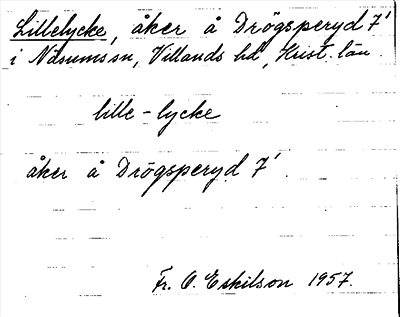 Lillelycke, åker å Drögsperyd 7¹
i Näsums sn, Villands hd, Krist. län.
lille-lycke
åker å Drögsperyd 7¹.
Fr. O. Eskilson 1957.